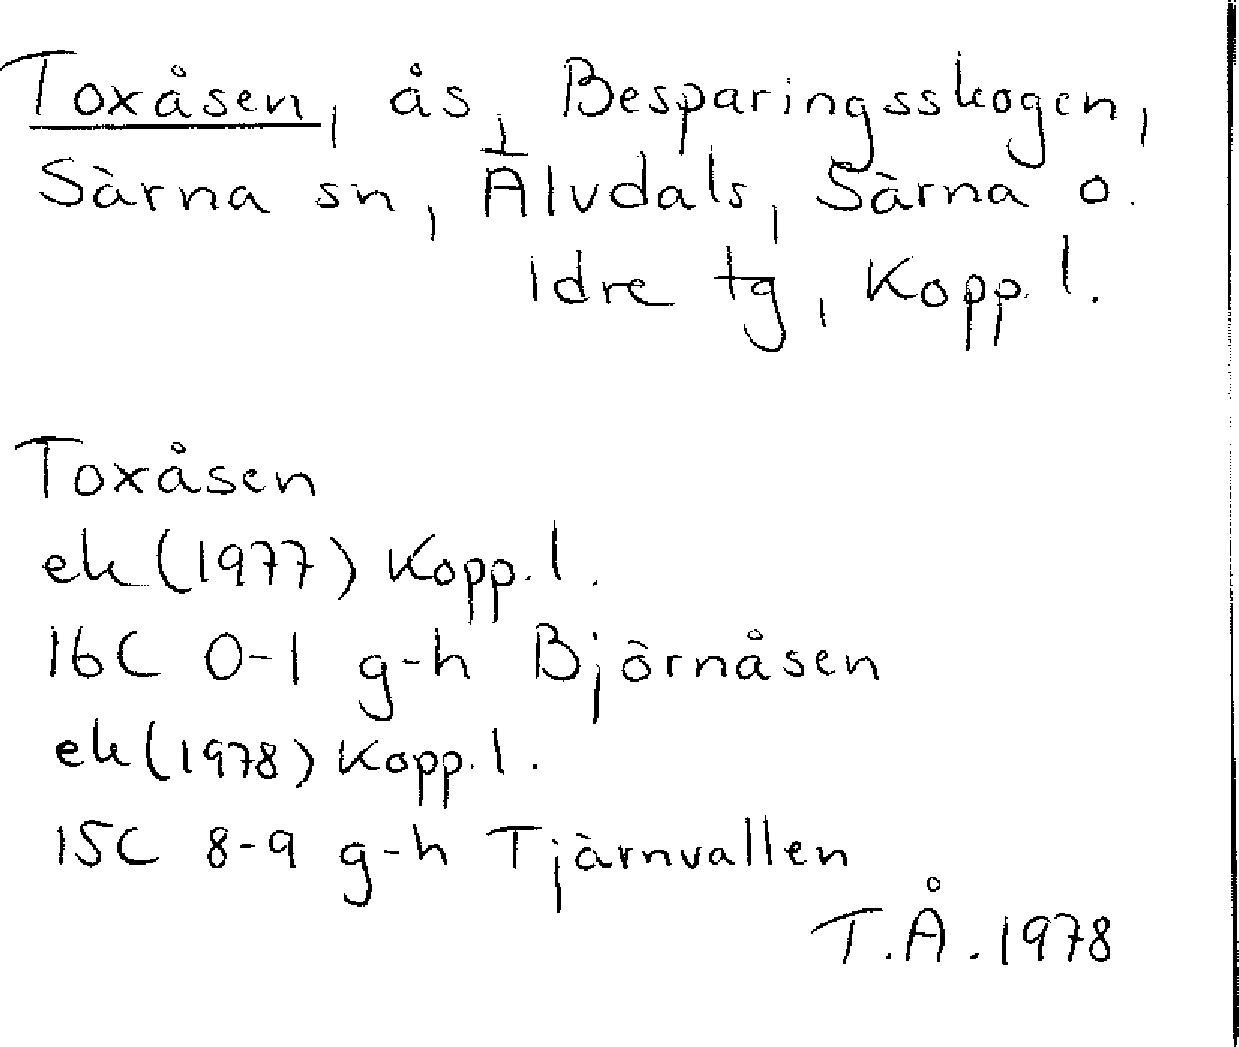 Toxåsen, ås, Besparingsskogen,
Särna sn, Älvdals, Särna o.
Idre tg, Kopp. l.
Toxåsen
ek (1977) Kopp. l.
16C 0-1 g-h Björnåsen
ek (1978) Kopp. l.
15C 8-9 g-h Tjärnvallen
T.Å. 1978